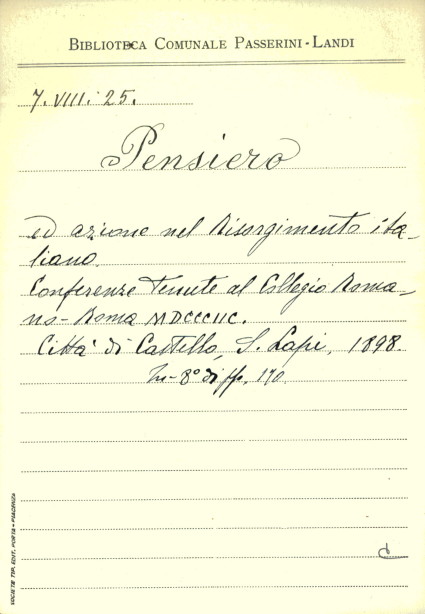 BIBLIOTECA COMUNALE PASSERINI-LANDI
7. VIII. 25.
Pensiero
ed azione nel Risorgimento ita-
liano.
Conferenze tenute al Collegio Roma-
no - Roma MDCCCIIC.
Città di Castello, S. Lapi, 1898.
In-8° di pp. 170.
SOCIETÀ TIP. EDIT. PORTA - PIACENZA